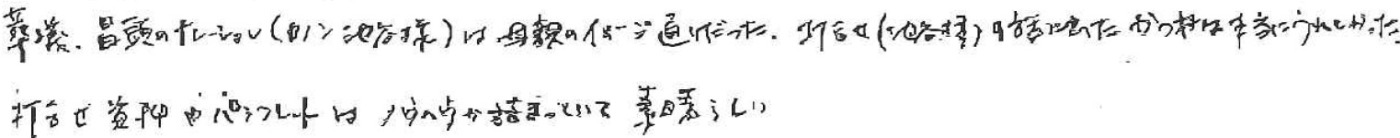 葬儀、冒頭のナレーション(カノン池谷様)は母親のイメージ通りだった。打合せ(池谷様)の話に出た かつ村は本当にうれしかった
打合せ資料やパンフレットは ノウハウが詰まっていて 素晴らしい